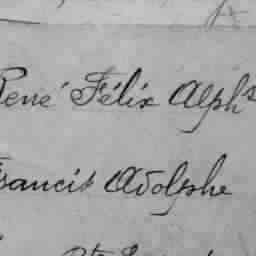 René Félix Alph
Francis Adolphe